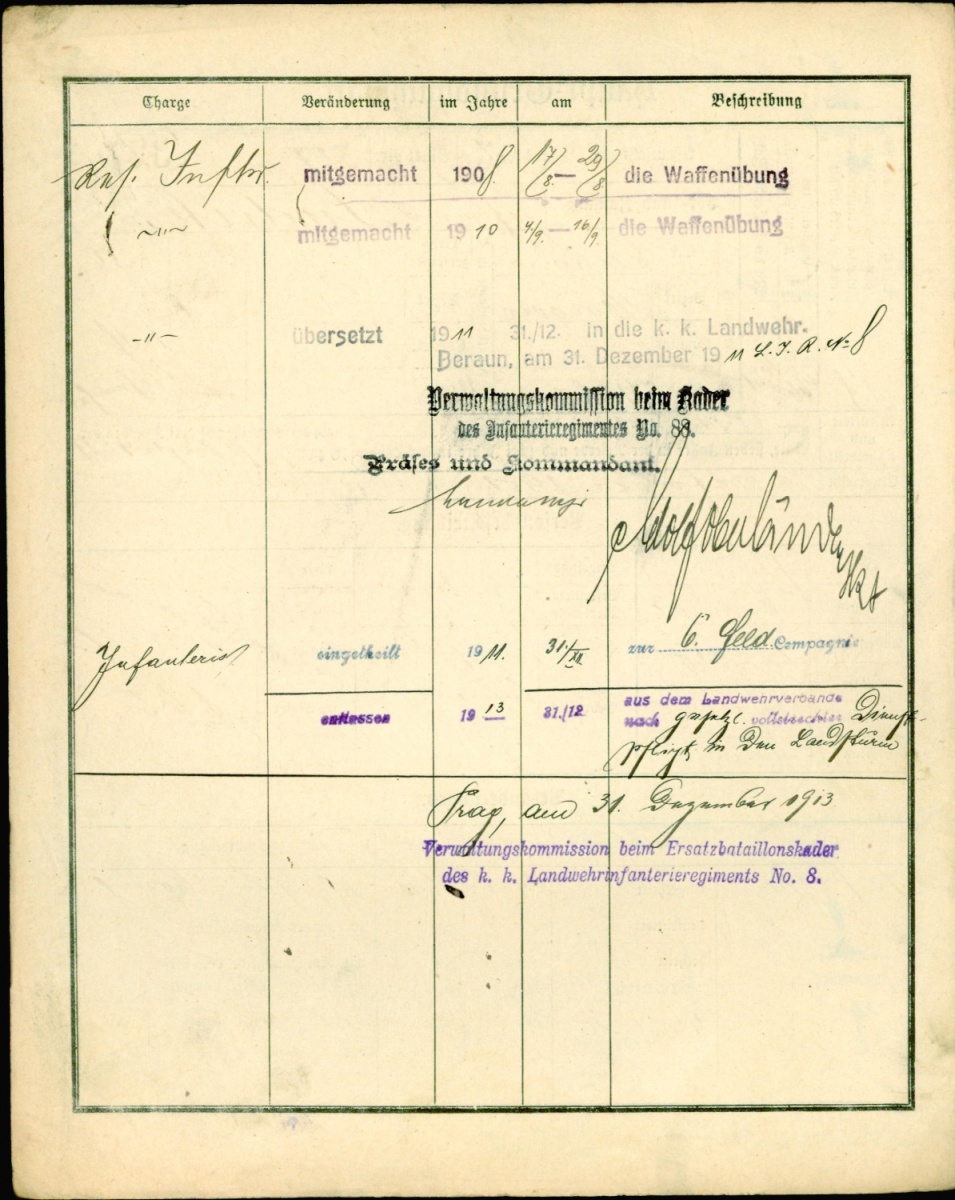 Charge Veränderung im Jahre am Beschreibung
Res. Inftr. mitgemacht 1908 17/8. — 29/8 die Waffenübung
~"~ mitgemacht 1910 4/9. — 16/9. die Waffenübung
-"- übersetzt 1911 31./12. in die k. k. Landwehr.
Beraun, am 31. Dezember 1911 L. I. R. No 8
Verwaltungskommission beim Kader
des Infanterieregimentes No. 88.
Präses und Kommandant.
Adolf
Infanterist eingetheilt 1911. 31./XII. zur 6. Feld Compagnie
entlassen 1913 31./12 aus dem Landwehrverbande
nach gesetzl. vollstreckter Dienst-
pflicht in den Landsturm
Prag, am 31. Dezember 1913
Verwaltungskommission beim Ersatzbataillonskader
des k. k. Landwehrinfanterieregiments No. 8.